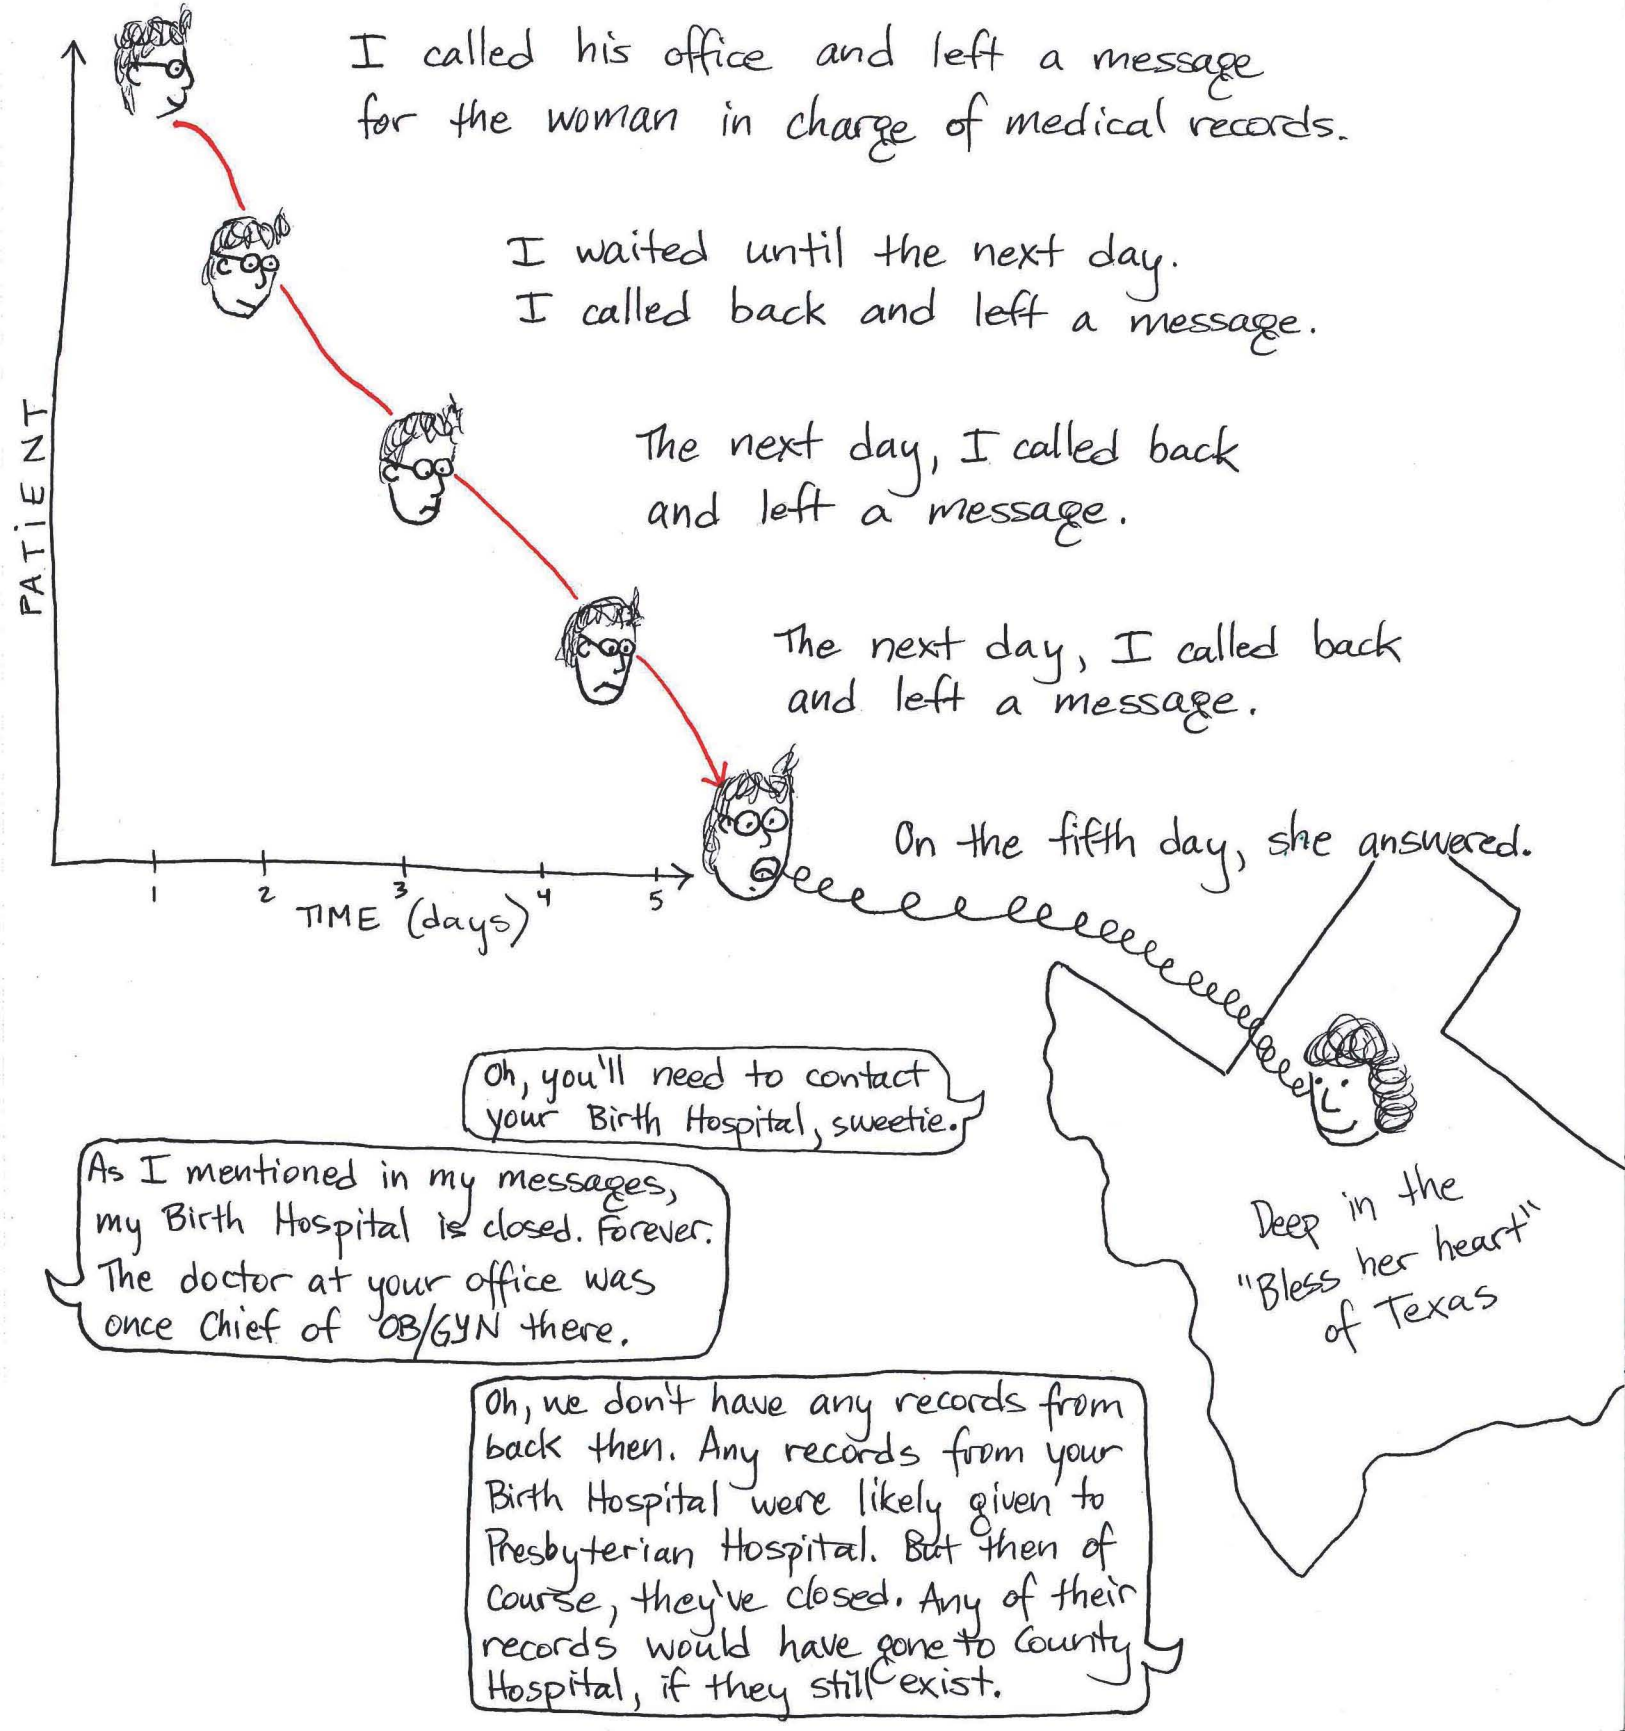 I called his office and left a message
for the woman in charge of medical records.
I waited until the next day.
I called back and left a message.
The next day, I called back
and left a message.
The next day, I called back
and left a message.
On the fifth day, she answered.
PATIENT
1 2 3 4 5
TIME (days)
Oh, you'll need to contact
your Birth Hospital, sweetie.
As I mentioned in my messages,
my Birth Hospital is closed. Forever.
The doctor at your office was
once Chief of OB/GYN there.
Deep in the
"Bless her heart"
of Texas
Oh, we don't have any records from
back then. Any records from your
Birth Hospital were likely given to
Presbyterian Hospital. But then of
course, they've closed. Any of their
records would have gone to County
Hospital, if they still exist.